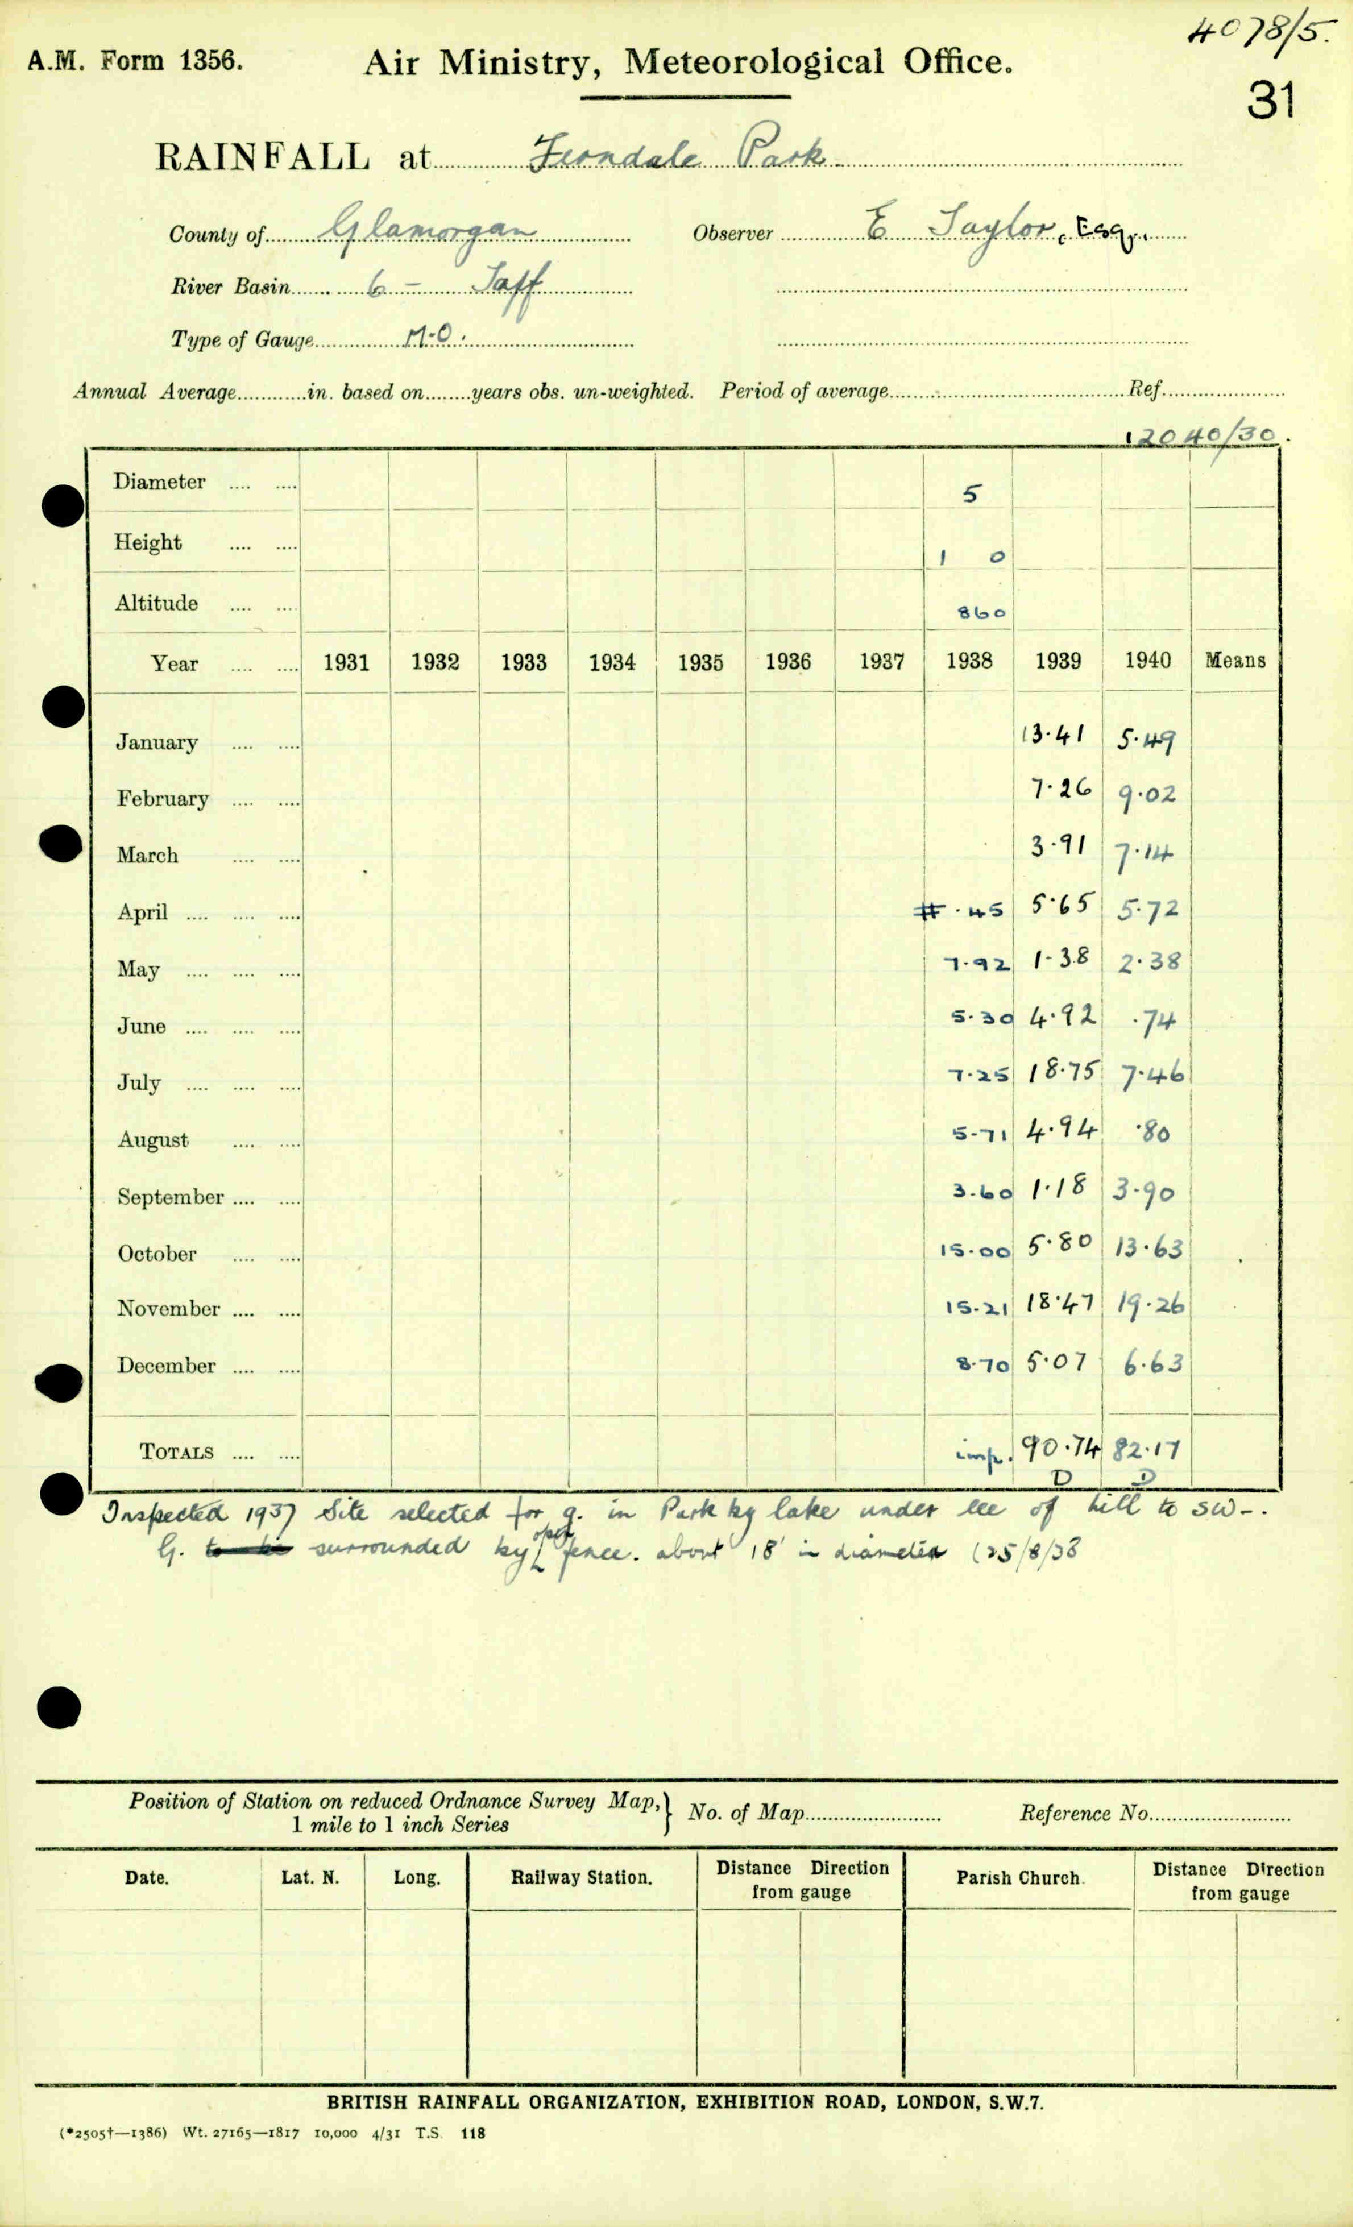 4078/5.
A.M. Form 1356. Air Ministry, Meteorological Office.
31
RAINFALL at Ferndale Park
County of Glamorgan Observer E Taylor, Esq.,
River Basin 6 – Taff
Type of Gauge M.O.
Annual Average in. based on years obs. un-weighted. Period of average Ref.
12040/30.
Diameter 5
Height 1 0
Altitude 860
Year 1931 1932 1933 1934 1935 1936 1937 1938 1939 1940 Means
January 13.41 5.49
February 7.26 9.02
March 3.91 7.14
April # .45 5.65 5.72
May 7.92 1.38 2.38
June 5.30 4.92 .74
July 7.25 18.75 7.46
August 5.71 4.94 .80
September 3.60 1.18 3.90
October 15.00 5.80 13.63
November 15.21 18.47 19.26
December 8.70 5.07 6.63
TOTALS imp. 90.74 82.17
D D
Inspected 1937 Site selected for g. in Park by lake under lee of hill to SW-.
G. surrounded by open fence. about 18' in diameter (25/8/38
Position of Station on reduced Ordnance Survey Map,} No. of Map Reference No.
1 mile to 1 inch Series
Date. Lat. N. Long. Railway Station. Distance Direction from gauge Parish Church. Distance Direction from gauge
BRITISH RAINFALL ORGANIZATION, EXHIBITION ROAD, LONDON, S.W.7.
(*2505†—1386) Wt. 27165—1817 10,000 4/31 T.S. 118